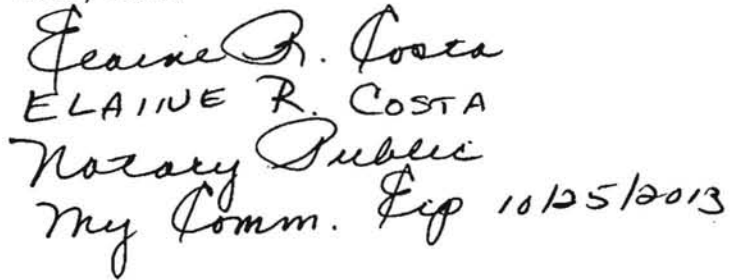 Elaine R. Costa
ELAINE R. COSTA
Notary Public
My Comm. Exp 10/25/2013